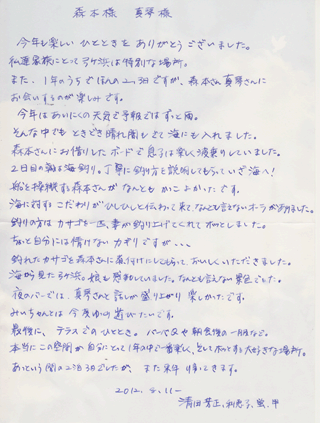 森本様 真琴様
今年も楽しい ひとときを ありがとう ございました。
私達家族にとって 弓ヶ浜は特別な場所。
また、1年のうちで ほんの2、3日ですが、森本さん 真琴さんに
お会いするのが 楽しみです。
今年は あいにくの天気で 予報では ずっと雨。
そんな中でも ときどき 晴れ間も でて 海にも入れました。
森本さんにお借りした ボードで 息子は楽しく波乗りしていました。
2日目の朝は 海釣り。丁寧に釣り方を 説明してもらって いざ海へ!
船を操縦する森本さんが なんとも かっこよかったです。
海に対する こだわりが ひしひしと伝わって来て、なんとも言えないオーラがありました。
釣りの方は カサゴを一匹、妻が釣り上げてくれて ホッとしました。
ちょっと自分には 情けない カギリですが、、、
釣れたカサゴを森本さんに 煮付けにしてもらって、おいしくいただきました。
海から見た弓ヶ浜の 娘も 感動していました。なんとも言えない 景色でした。
夜のバーでは、真琴さんと 話しが 盛り上がり 楽しかったです。
みぃちゃんとは 今度ゆっくり 遊びたいです。
最後に、テラスでの ひととき。
本当に この空間が 自分にとって 1年の中で 一番楽しく、そして ホッとする 大好きな場所。
あっという間の 2泊3日でしたが、また 来年 帰ってきます。
2012.
清田 芳正、利恵子、